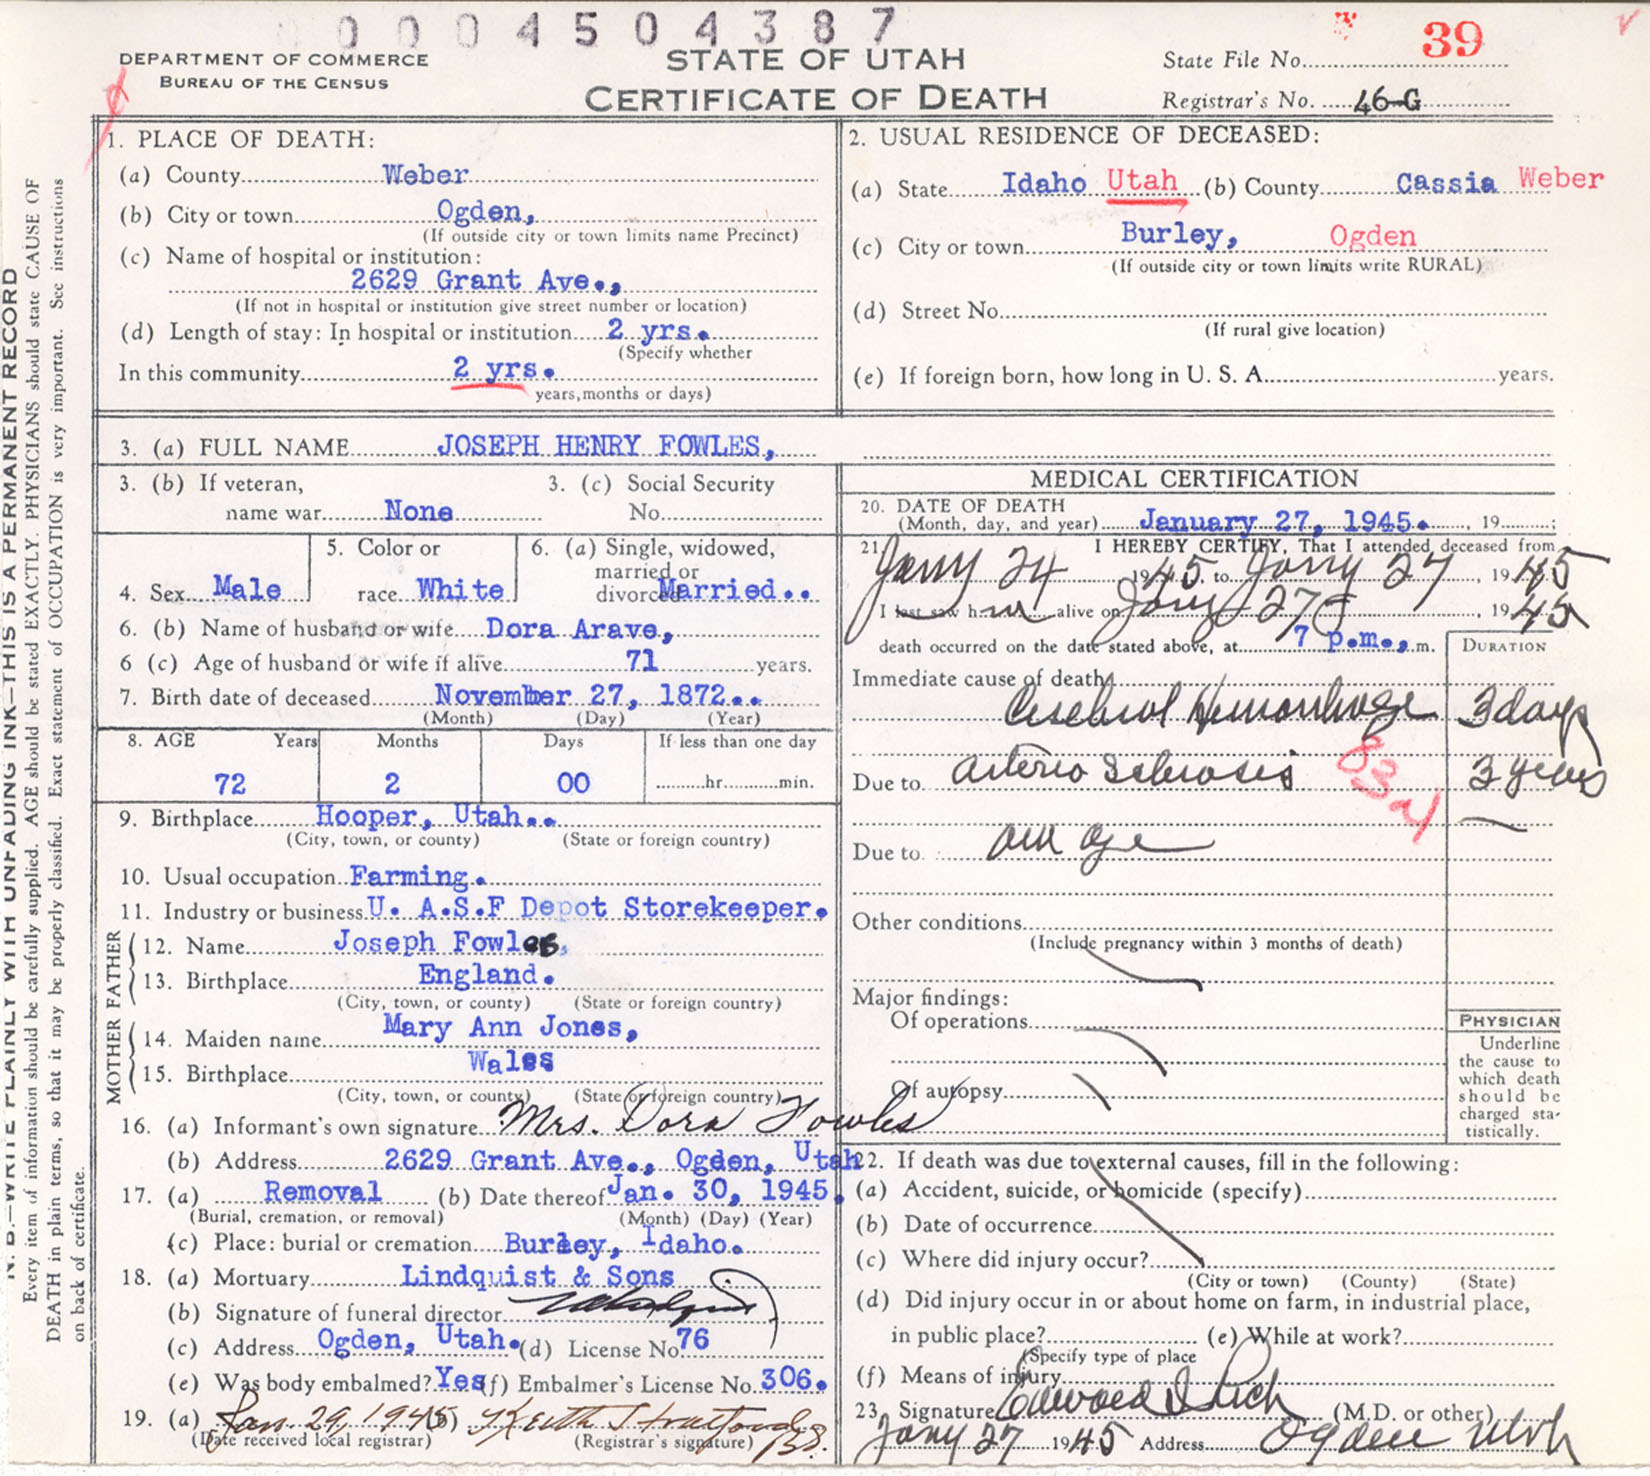 00004504387
DEPARTMENT OF COMMERCE
BUREAU OF THE CENSUS
STATE OF UTAH
CERTIFICATE OF DEATH
State File No. 39
Registrar's No. 46-G
N. B.—WRITE PLAINLY WITH UNFADING INK—THIS IS A PERMANENT RECORD
Every item of information should be carefully supplied. AGE should be stated EXACTLY. PHYSICIANS should state CAUSE OF
DEATH in plain terms, so that it may be properly classified. Exact statement of OCCUPATION is very important. See instructions
on back of certificate.
1. PLACE OF DEATH:
(a) County Weber
(b) City or town Ogden,
(If outside city or town limits name Precinct)
(c) Name of hospital or institution:
2629 Grant Ave.,
(If not in hospital or institution give street number or location)
(d) Length of stay: In hospital or institution 2 yrs.
(Specify whether
In this community 2 yrs.
years, months or days)
2. USUAL RESIDENCE OF DECEASED:
(a) State Idaho Utah (b) County Cassia Weber
(c) City or town Burley, Ogden
(If outside city or town limits write RURAL)
(d) Street No.
(If rural give location)
(e) If foreign born, how long in U. S. A. years.
3. (a) FULL NAME JOSEPH HENRY FOWLES,
3. (b) If veteran,
name war None
3. (c) Social Security
No.
4. Sex Male
5. Color or
race White
6. (a) Single, widowed,
married or
divorced Married..
6. (b) Name of husband or wife Dora Arave,
6 (c) Age of husband or wife if alive 71 years.
7. Birth date of deceased November 27, 1872..
(Month) (Day) (Year)
8. AGE Years Months Days If less than one day
72 2 00 hr. min.
9. Birthplace Hooper, Utah..
(City, town, or county) (State or foreign country)
10. Usual occupation Farming.
11. Industry or business U. A.S.F Depot Storekeeper.
FATHER
12. Name Joseph Fowles,
13. Birthplace England.
(City, town, or county) (State or foreign country)
MOTHER
14. Maiden name Mary Ann Jones,
15. Birthplace Wales
(City, town, or county) (State or foreign country)
16. (a) Informant's own signature Mrs. Dora Fowles
(b) Address 2629 Grant Ave., Ogden, Utah
17. (a) Removal (b) Date thereof Jan. 30, 1945.
(Burial, cremation, or removal) (Month) (Day) (Year)
(c) Place: burial or cremation Burley, Idaho.
18. (a) Mortuary Lindquist & Sons
(b) Signature of funeral director
(c) Address Ogden, Utah. (d) License No. 76
(e) Was body embalmed? Yes (f) Embalmer's License No. 306.
19. (a) Jan. 29, 1945 (b) Keith Stratford
(Date received local registrar) (Registrar's signature)
MEDICAL CERTIFICATION
20. DATE OF DEATH
(Month, day, and year) January 27, 1945. , 19 ;
21. I HEREBY CERTIFY, That I attended deceased from
Jany 24 1945 to Jany 27, 1945
I last saw him alive on Jany 27 1945
death occurred on the date stated above, at 7 p.m., m.
DURATION
Immediate cause of death
Cerebral Hemorrhage 3 days
Due to arterio Sclerosis 3 years
83a
Due to
Other conditions
(Include pregnancy within 3 months of death)
Major findings:
Of operations
Of autopsy
PHYSICIAN
Underline
the cause to
which death
should be
charged sta-
tistically.
22. If death was due to external causes, fill in the following:
(a) Accident, suicide, or homicide (specify)
(b) Date of occurrence
(c) Where did injury occur?
(City or town) (County) (State)
(d) Did injury occur in or about home on farm, in industrial place,
in public place? (e) While at work?
(Specify type of place
(f) Means of injury
23. Signature Edward I Rich (M.D. or other)
Jany 27 1945 Address Ogden Utah